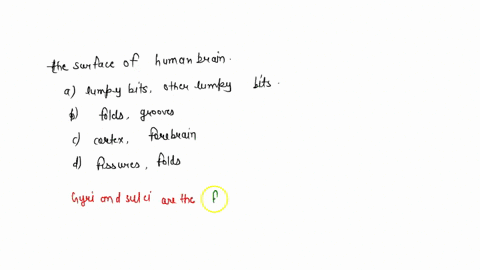 the surface of human brain.
a) lumpy bits, other lumpy bits.
b) folds, grooves
c) cortex, forebrain
d) fissures, folds
Gyri and sulci are the f